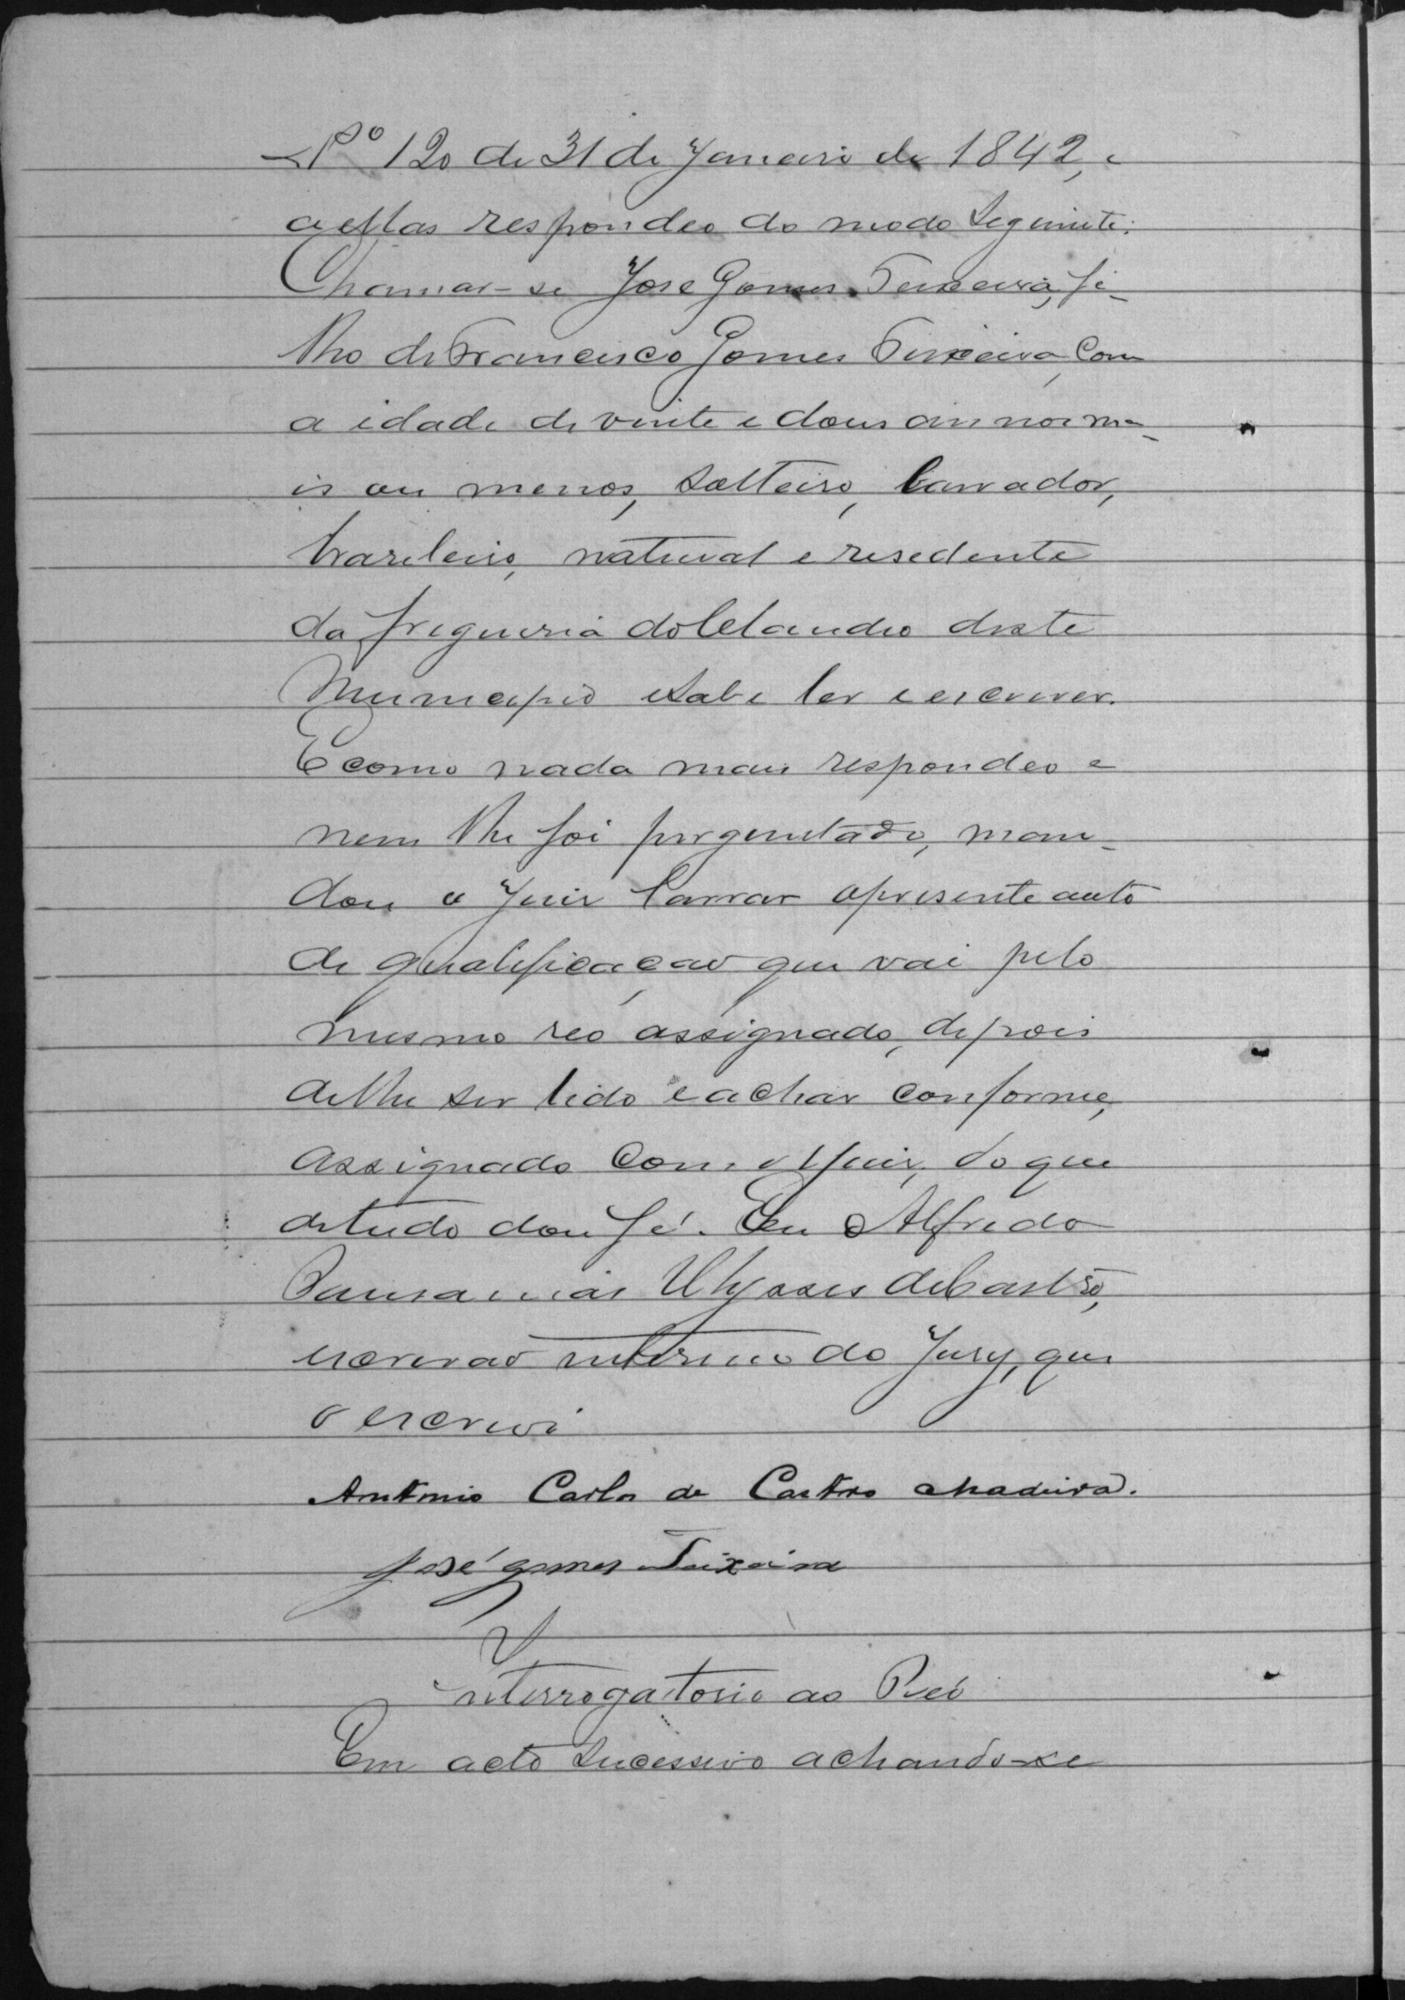 Nº 120 de 31 de Janeiro de 1842, e
a ellas respondeo do modo seguinte:
Chamar-se Jose Gomes Teixeira, fi-
lho de Francisco Gomes Teixeira, com
a idade de vinte e dous annos ma-
is ou menos, solteiro, lavrador,
brazileiro, natural e residente
da freguezia do Claudio deste
Municipio e sabe ler e escrever.
E como nada mais respondeo e
nem lhe foi perguntado, man-
dou o Juiz lavrar o presente auto
de qualificação que vai pelo
mesmo reo assignado, depois
de lhe ser lido e achar conforme,
assignado com o Juiz, do que
de tudo dou fé. Eu Alfredo
Pausanias Ulysses de Castro,
escrivão interino do Jury, que
o escrevi
Antonio Carlos de Castro Madeira.
José gomes Teixeira
Interrogatorio ao Reo
Em acto sucessivo achando-se